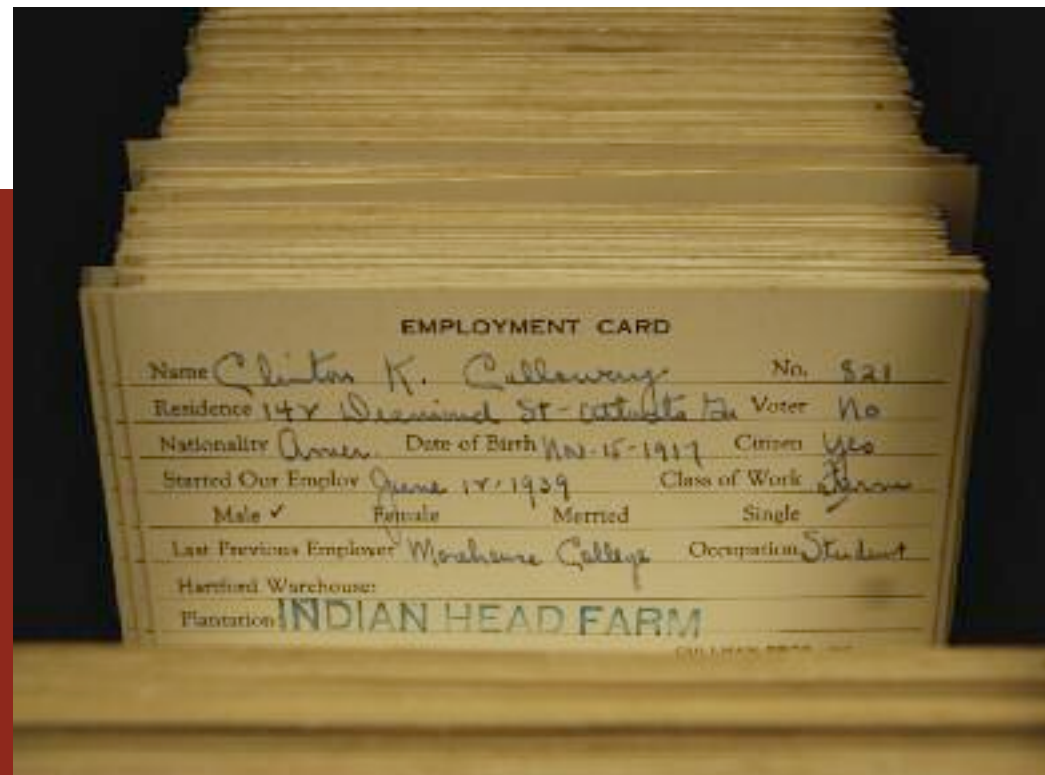 EMPLOYMENT CARD
Name Clinton K. Calloway No. 821
Residence 142 St - Ga Voter No
Nationality Amer. Date of Birth Nov-15-1917 Citizen Yes
Started Our Employ June 12-1939 Class of Work Farm
Male ✓ Female Married Single ✓
Last Previous Employer Morehouse College Occupation Student
Hartford Warehouse:
Plantation INDIAN HEAD FARM
CULLMAN BROS.